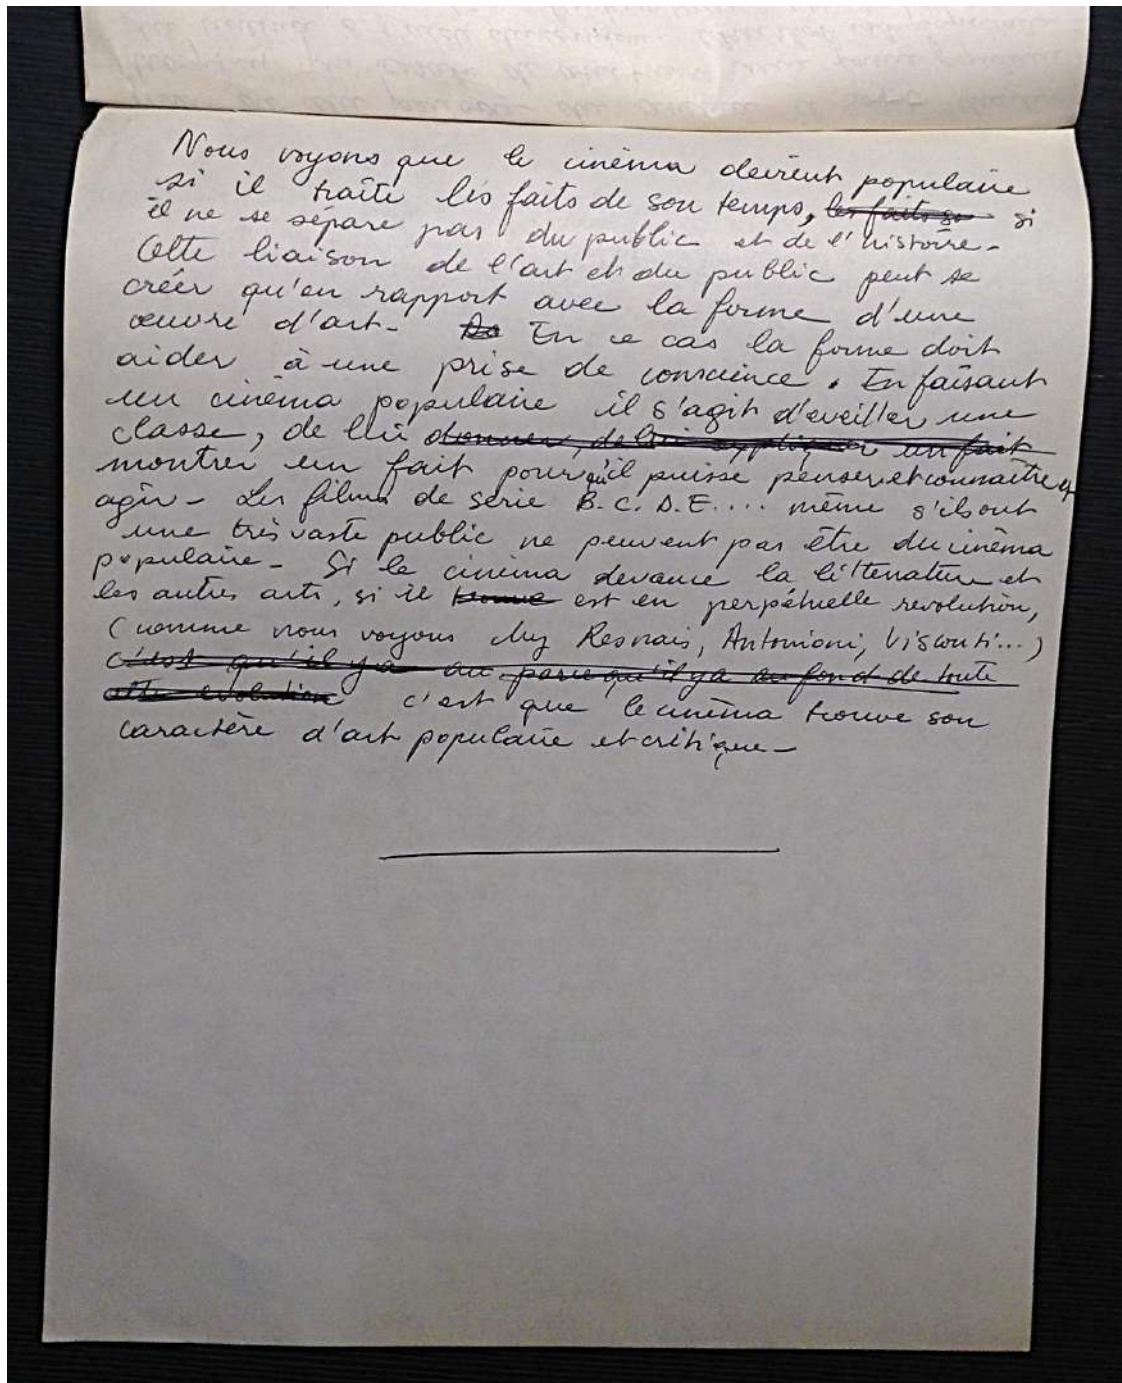 Nous voyons que le cinéma devient populaire
si il traîte les faits de son temps, les faits so si
il ne se sépare pas du public et de l'histoire.
Cette liaison de l'art et du public peut se
créer qu'en rapport avec la forme d'une
œuvre d'art. En ce cas la forme doit
aider à une prise de conscience. En faisant
un cinéma populaire il s'agit d'eveiller une
classe, de lui donner, de lui appliquer un fait
montrer un fait pour qu'il puisse penser et connaître et
agir - Les films de serie B.C.D.E.... même s'ils ont
une très vaste public ne peuvent pas être du cinéma
populaire - Si le cinéma devance la littérature et
les autres arts, si il trouve est en perpétuelle revolution,
(comme nous voyons chez Resnais, Antonioni, Visconti...)
c'est qu'il y a au parce qu'il y a au fond de toute
cette evolution c'est que le cinéma trouve son
caractère d'art populaire et critique -